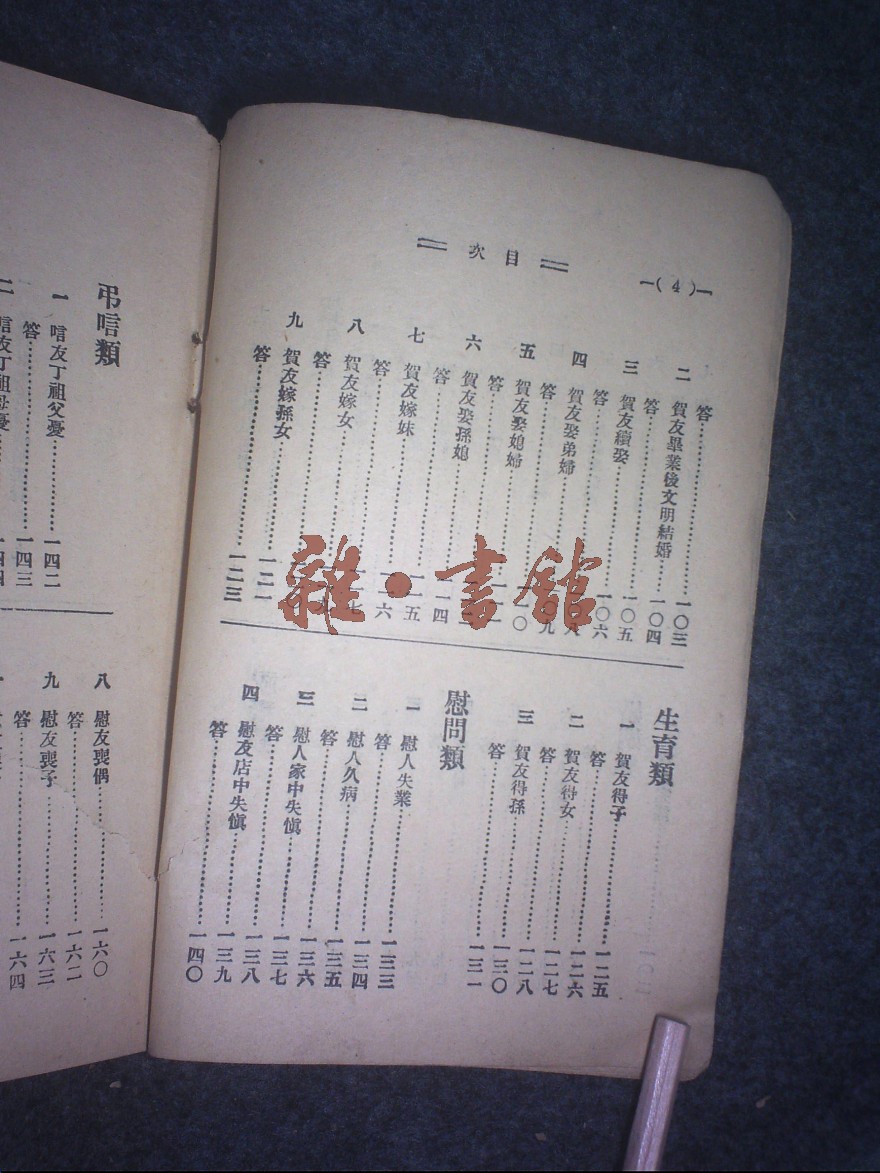 —( 4 )—
目次
答……一〇三
二 賀友畢業後文明結婚……一〇四
答……一〇五
三 賀友續娶……一〇六
答……〇八
四 賀友娶弟婦……〇九
答……一〇
五 賀友娶媳婦……
答……
六 賀友娶孫媳……一四
答……一一五
七 賀友嫁妹……一六
答……一七
八 賀友嫁女……
答……
九 賀友嫁孫女……一二一
答……一二三
生育類
一 賀友得子……一二五
答……一二六
二 賀友得女……一二七
答……一二八
三 賀友得孫……一三〇
答……一三一
慰問類
一 慰人失業……一三三
答……一三四
二 慰人久病……一三五
答……一三六
三 慰人家中失愼……一三七
答……一三八
四 慰友店中失愼……一三九
答……一四〇
弔唁類
一 唁友丁祖父憂……一四二
答……一四三
二 唁友丁祖母憂……一四四
八 慰友喪偶……一六〇
答……一六二
九 慰友喪子……一六三
答……一六四
雜·書館